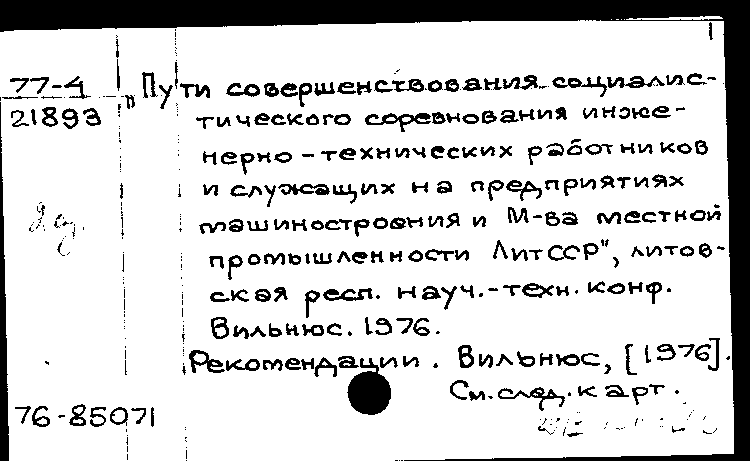 77-4
21893
„Пути совершенствования социалис-
тического соревнования инже-
нерно-технических работников
и служащих на предприятиях
машиностроения и М-ва местной
промышленности ЛитССР", литов-
ская респ. науч.-техн. конф.
Вильнюс. 1976.
Рекомендации. Вильнюс, [1976].
См. след. карт.
76-85071